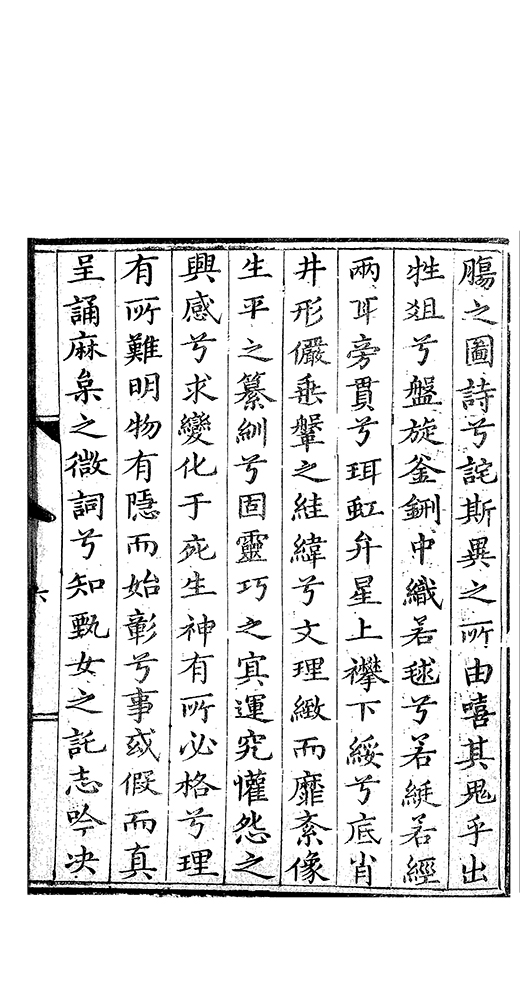 腸之圖詩兮詫斯異之所由嘻其鬼乎出
牲俎兮盤旋釜鉶中織若毬兮若綖若經
兩耳旁貫兮珥虹弁星上襻下綏兮底肖
井形儼垂鞶之絓緯兮文理緻而靡紊像
生平之纂紃兮固靈巧之冥運究懽怨之
興感兮求變化于死生神有所必格兮理
有所難明物有隱而始彰兮事或假而真
呈誦麻枲之微詞兮知甄女之託志吟决
六